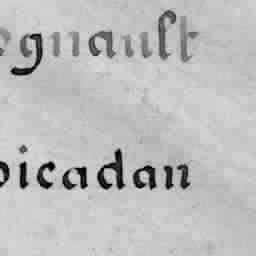 egnault
oicadan